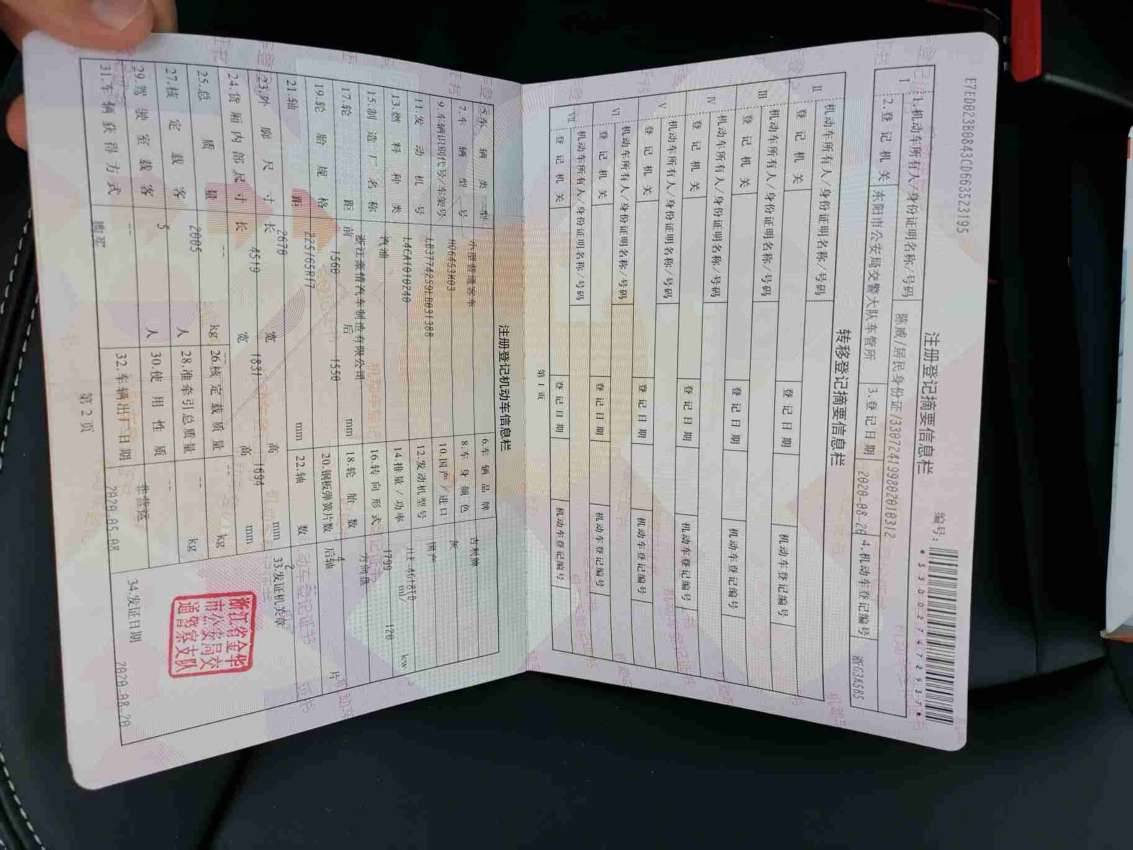 E7ED023B0843CD663523195
注册登记摘要信息栏
编号:
I 1.机动车所有人/身份证明名称/号码 陈威/居民身份证/330724199802010312
2.登记机关 东阳市公安局交警大队车管所 3.登记日期 2020-08-20 4.机动车登记编号 浙G3A585
转移登记摘要信息栏
II 机动车所有人/身份证明名称/号码
登记机关 登记日期 机动车登记编号
III 机动车所有人/身份证明名称/号码
登记机关 登记日期 机动车登记编号
IV 机动车所有人/身份证明名称/号码
登记机关 登记日期 机动车登记编号
V 机动车所有人/身份证明名称/号码
登记机关 登记日期 机动车登记编号
VI 机动车所有人/身份证明名称/号码
登记机关 登记日期 机动车登记编号
VII 机动车所有人/身份证明名称/号码
登记机关 登记日期 机动车登记编号
第1页
注册登记机动车信息栏
5.车辆类型 小型普通客车 6.车辆品牌 吉利牌
7.车辆型号 8.车身颜色 灰
9.车辆识别代号/车架号 10.国产/进口 国产
11.发动机号 12.发动机型号
13.燃料种类 汽油 14.排量/功率 1799 ml/ 120 kw
15.制造厂名称 浙江豪情汽车制造有限公司 16.转向形式 方向盘
17.轮距 前 1560 后 1550 mm 18.轮胎数 4
19.轮胎规格 225/65R17 20.钢板弹簧片数 后轴 片
21.轴距 2670 mm 22.轴数 2
23.外廓尺寸 长 4519 宽 1831 高 1694 mm 33.发证机关章
24.货厢内部尺寸 长 宽 高 mm
25.总质量 2005 kg 26.核定载质量 -- kg
27.核定载客 5 人 28.准牵引总质量 -- kg
29.驾驶室载客 -- 人 30.使用性质 非营运
31.车辆获得方式 购买 32.车辆出厂日期 2020.05.08 34.发证日期 2020.08.20
浙江省金华
市公安局交
通警察支队
第2页